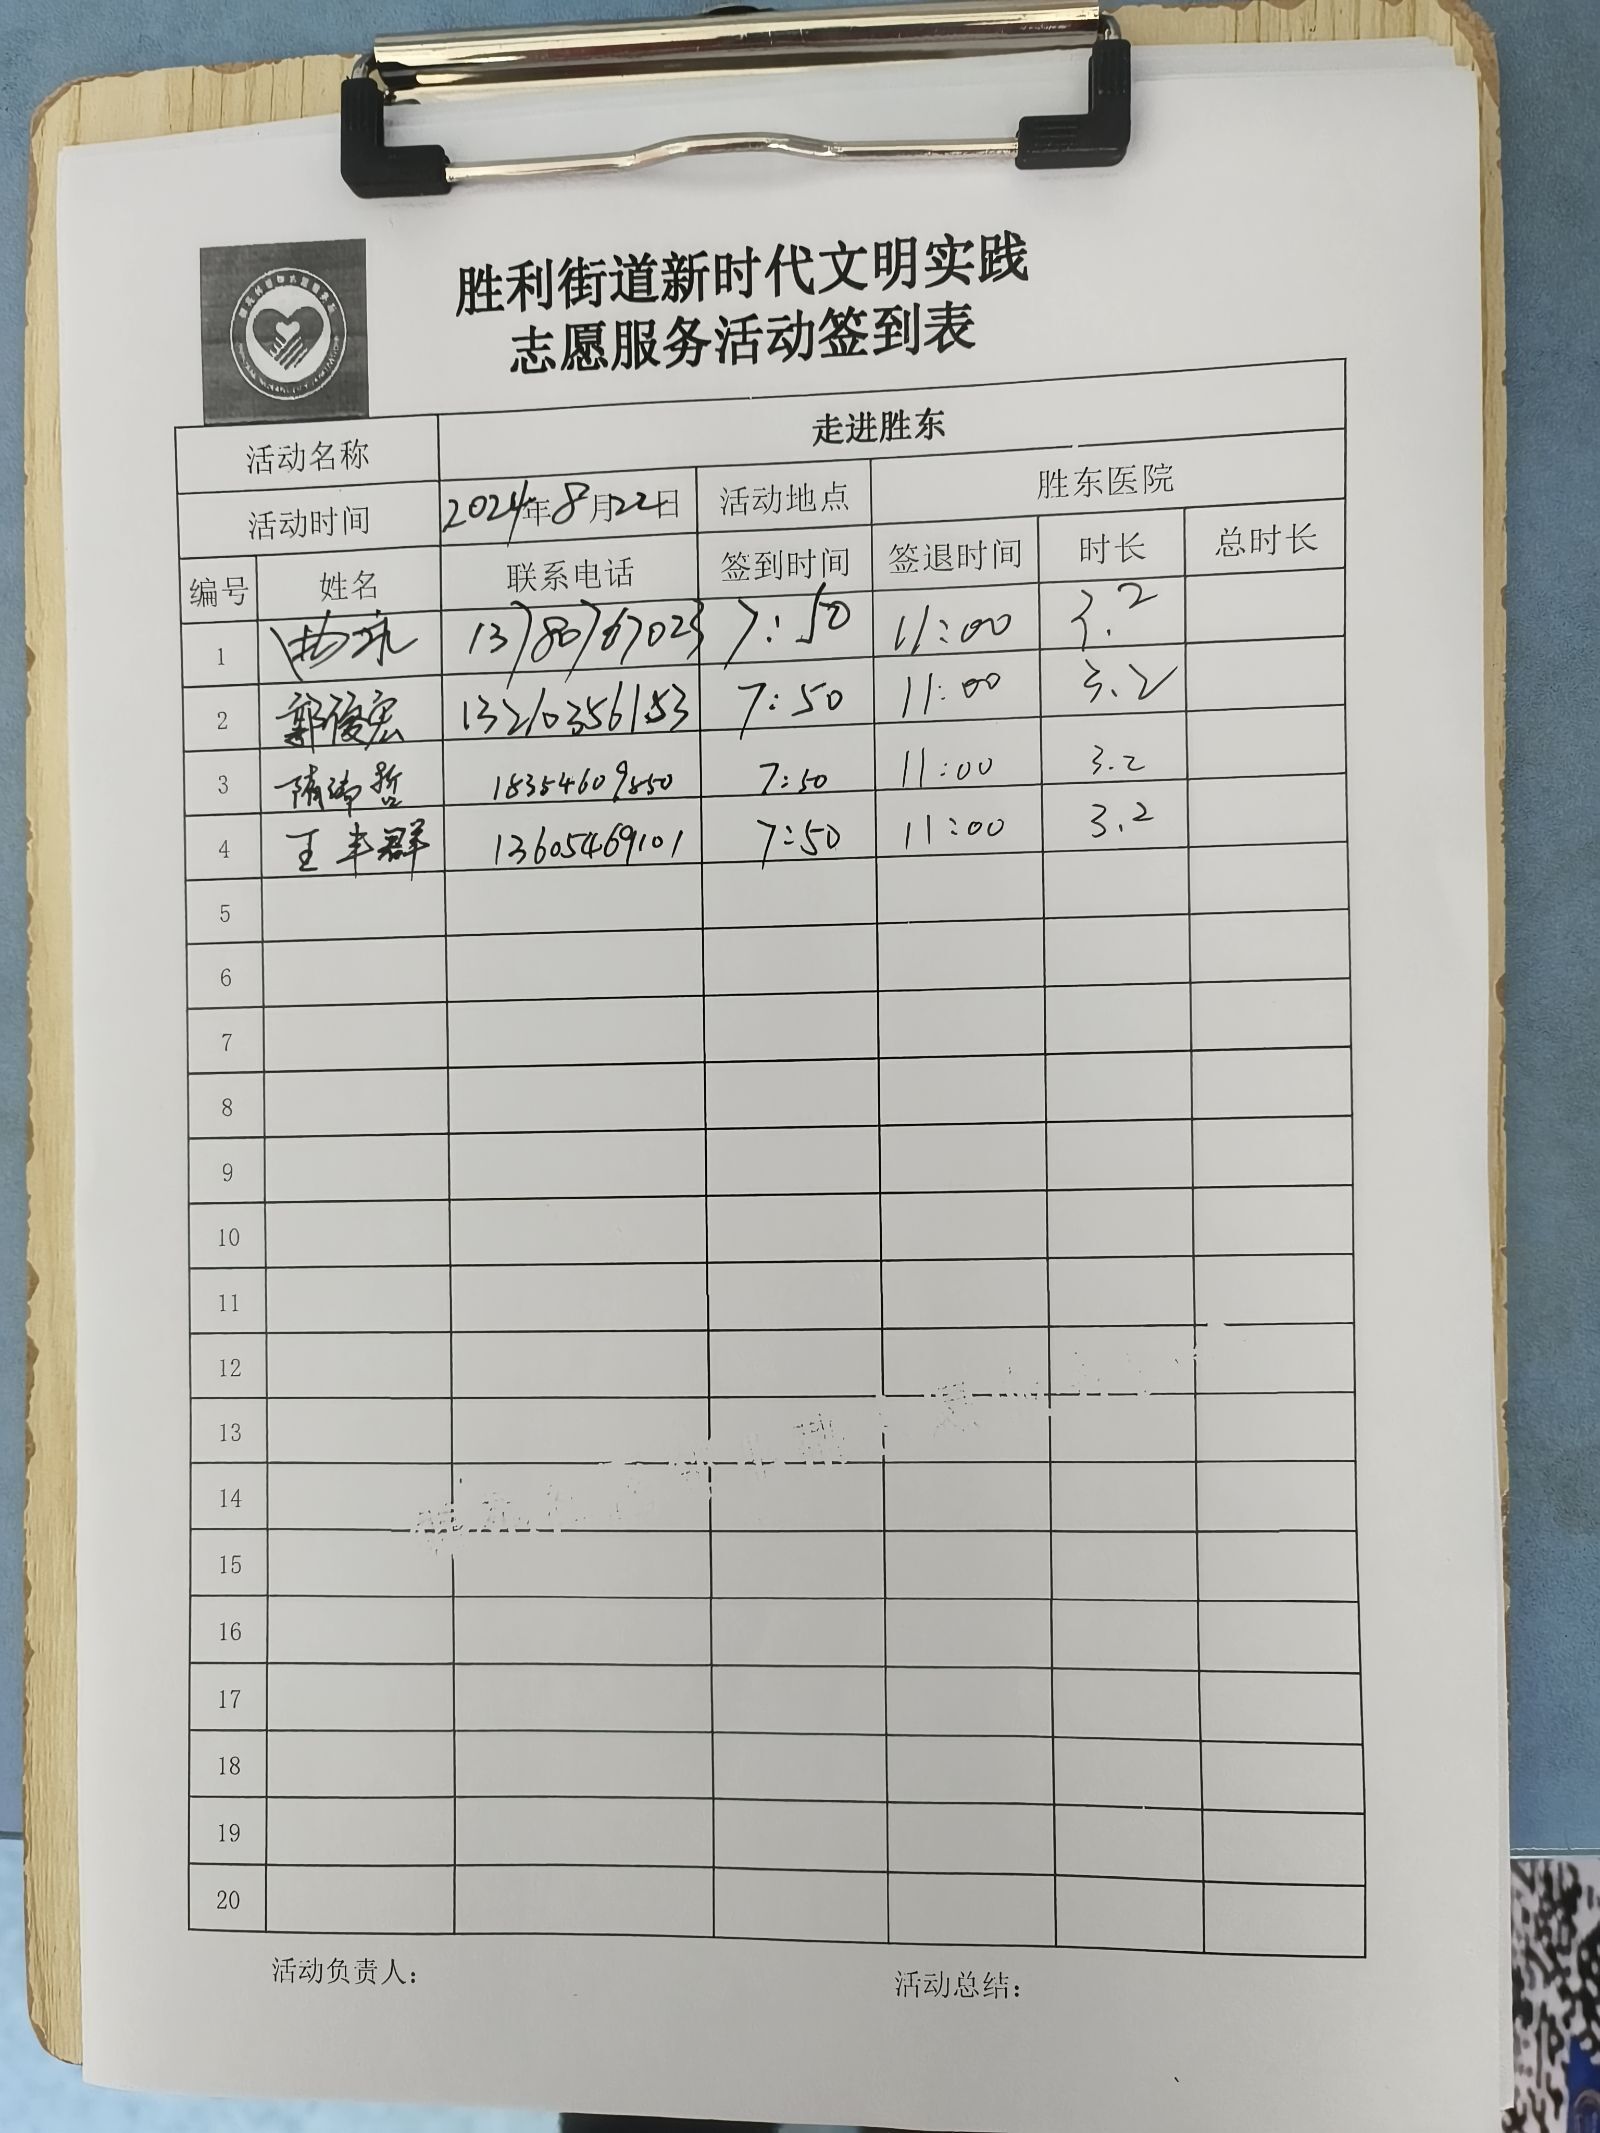 胜利街道新时代文明实践
志愿服务活动签到表
活动名称 走进胜东
活动时间 2024年8月22日 活动地点 胜东医院
编号 姓名 联系电话 签到时间 签退时间 时长 总时长
1 13780767023 7:50 11:00 3.2
2 郭俊宏 13210356153 7:50 11:00 3.2
3 隋 哲 18354609850 7:50 11:00 3.2
4 王丰群 13605469101 7:50 11:00 3.2
5
6
7
8
9
10
11
12
13
14
15
16
17
18
19
20
活动负责人： 活动总结：